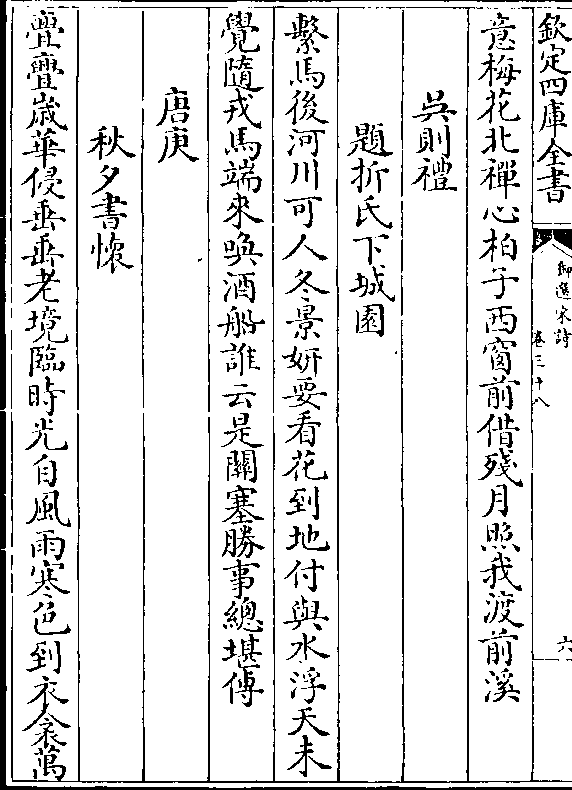 欽定四庫全書
御選宋詩
卷三十八
六
意梅花北禪心柏子西窗前借殘月照我渡前溪
吳則禮
題折氏下城園
繫馬後河川可人冬景妍要看花到地付與水浮天未
覺隨戎馬端來喚酒船誰云是關塞勝事總堪傳
唐庚
秋夕書懷
亹亹嵗華侵垂垂老境臨時光自風雨寒色到衣衾萬